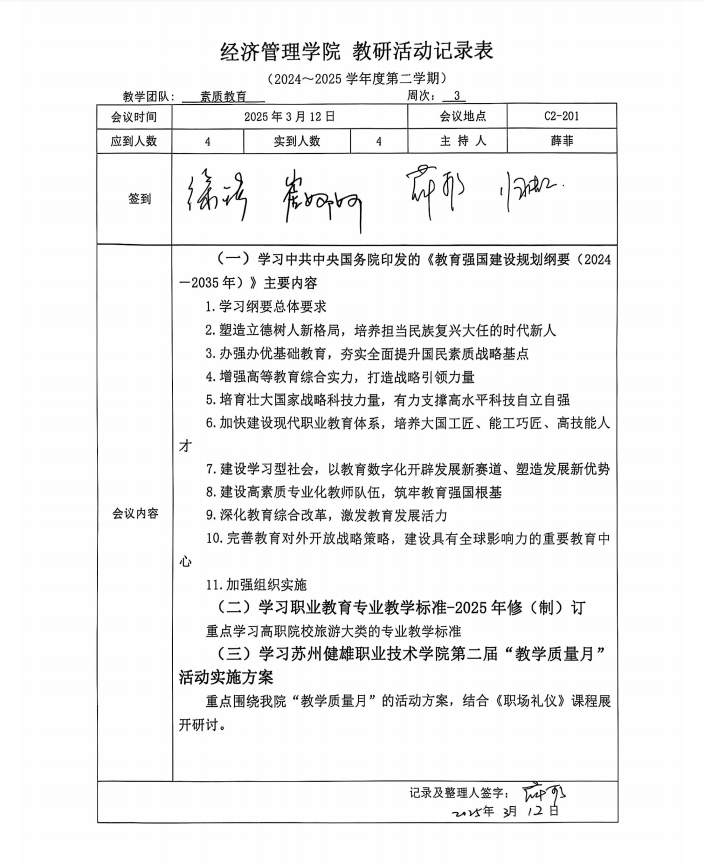 经济管理学院 教研活动记录表
（2024～2025 学年度第二学期）
教学团队： 素质教育 周次： 3
会议时间 2025 年 3 月 12 日 会议地点 C2-201
应到人数 4 实到人数 4 主 持 人 薛菲
签到
（一）学习中共中央国务院印发的《教育强国建设规划纲要（2024
—2035 年）》主要内容
1.学习纲要总体要求
2.塑造立德树人新格局，培养担当民族复兴大任的时代新人
3.办强办优基础教育，夯实全面提升国民素质战略基点
4.增强高等教育综合实力，打造战略引领力量
5.培育壮大国家战略科技力量，有力支撑高水平科技自立自强
6.加快建设现代职业教育体系，培养大国工匠、能工巧匠、高技能人
才
7.建设学习型社会，以教育数字化开辟发展新赛道、塑造发展新优势
8.建设高素质专业化教师队伍，筑牢教育强国根基
会议内容
9.深化教育综合改革，激发教育发展活力
10.完善教育对外开放战略策略，建设具有全球影响力的重要教育中
心
11.加强组织实施
（二）学习职业教育专业教学标准-2025 年修（制）订
重点学习高职院校旅游大类的专业教学标准
（三）学习苏州健雄职业技术学院第二届“教学质量月”
活动实施方案
重点围绕我院“教学质量月”的活动方案，结合《职场礼仪》课程展
开研讨。
记录及整理人签字： 薛菲
2025年 3月 12日